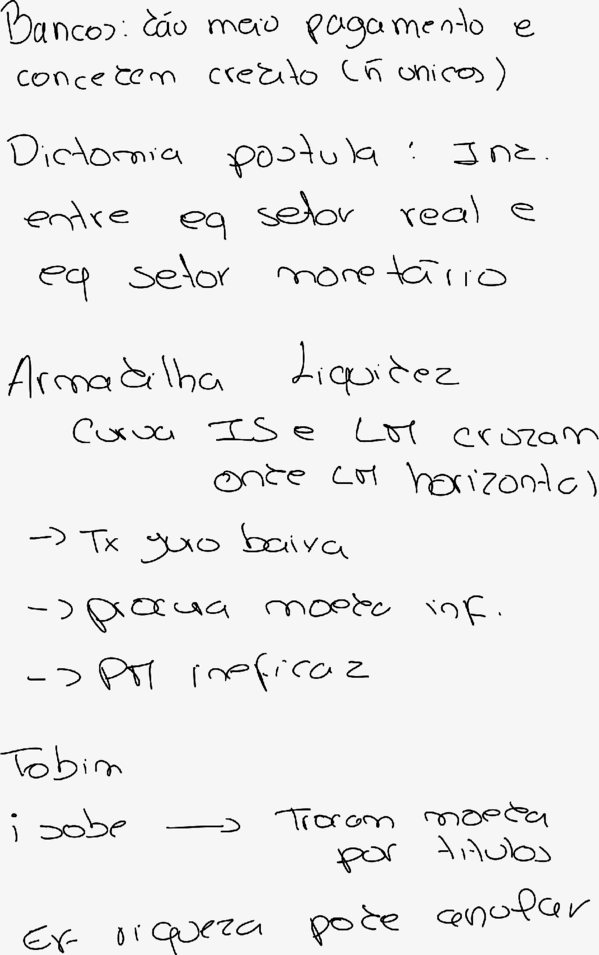 Bancos: dão meio pagamento e
concedem credito (ñ unicos)
Dictomia postula: Ind.
entre eq setor real e
eq setor monetário
Armadilha Liquidez
Curva IS e LM cruzam
onde LM horizontal
-> Tx juro baixa
-> procua moeda inf.
-> PM ineficaz
Tobin
i sobe -> Trocam moeda
por titulos
Ef riqueza pode anular